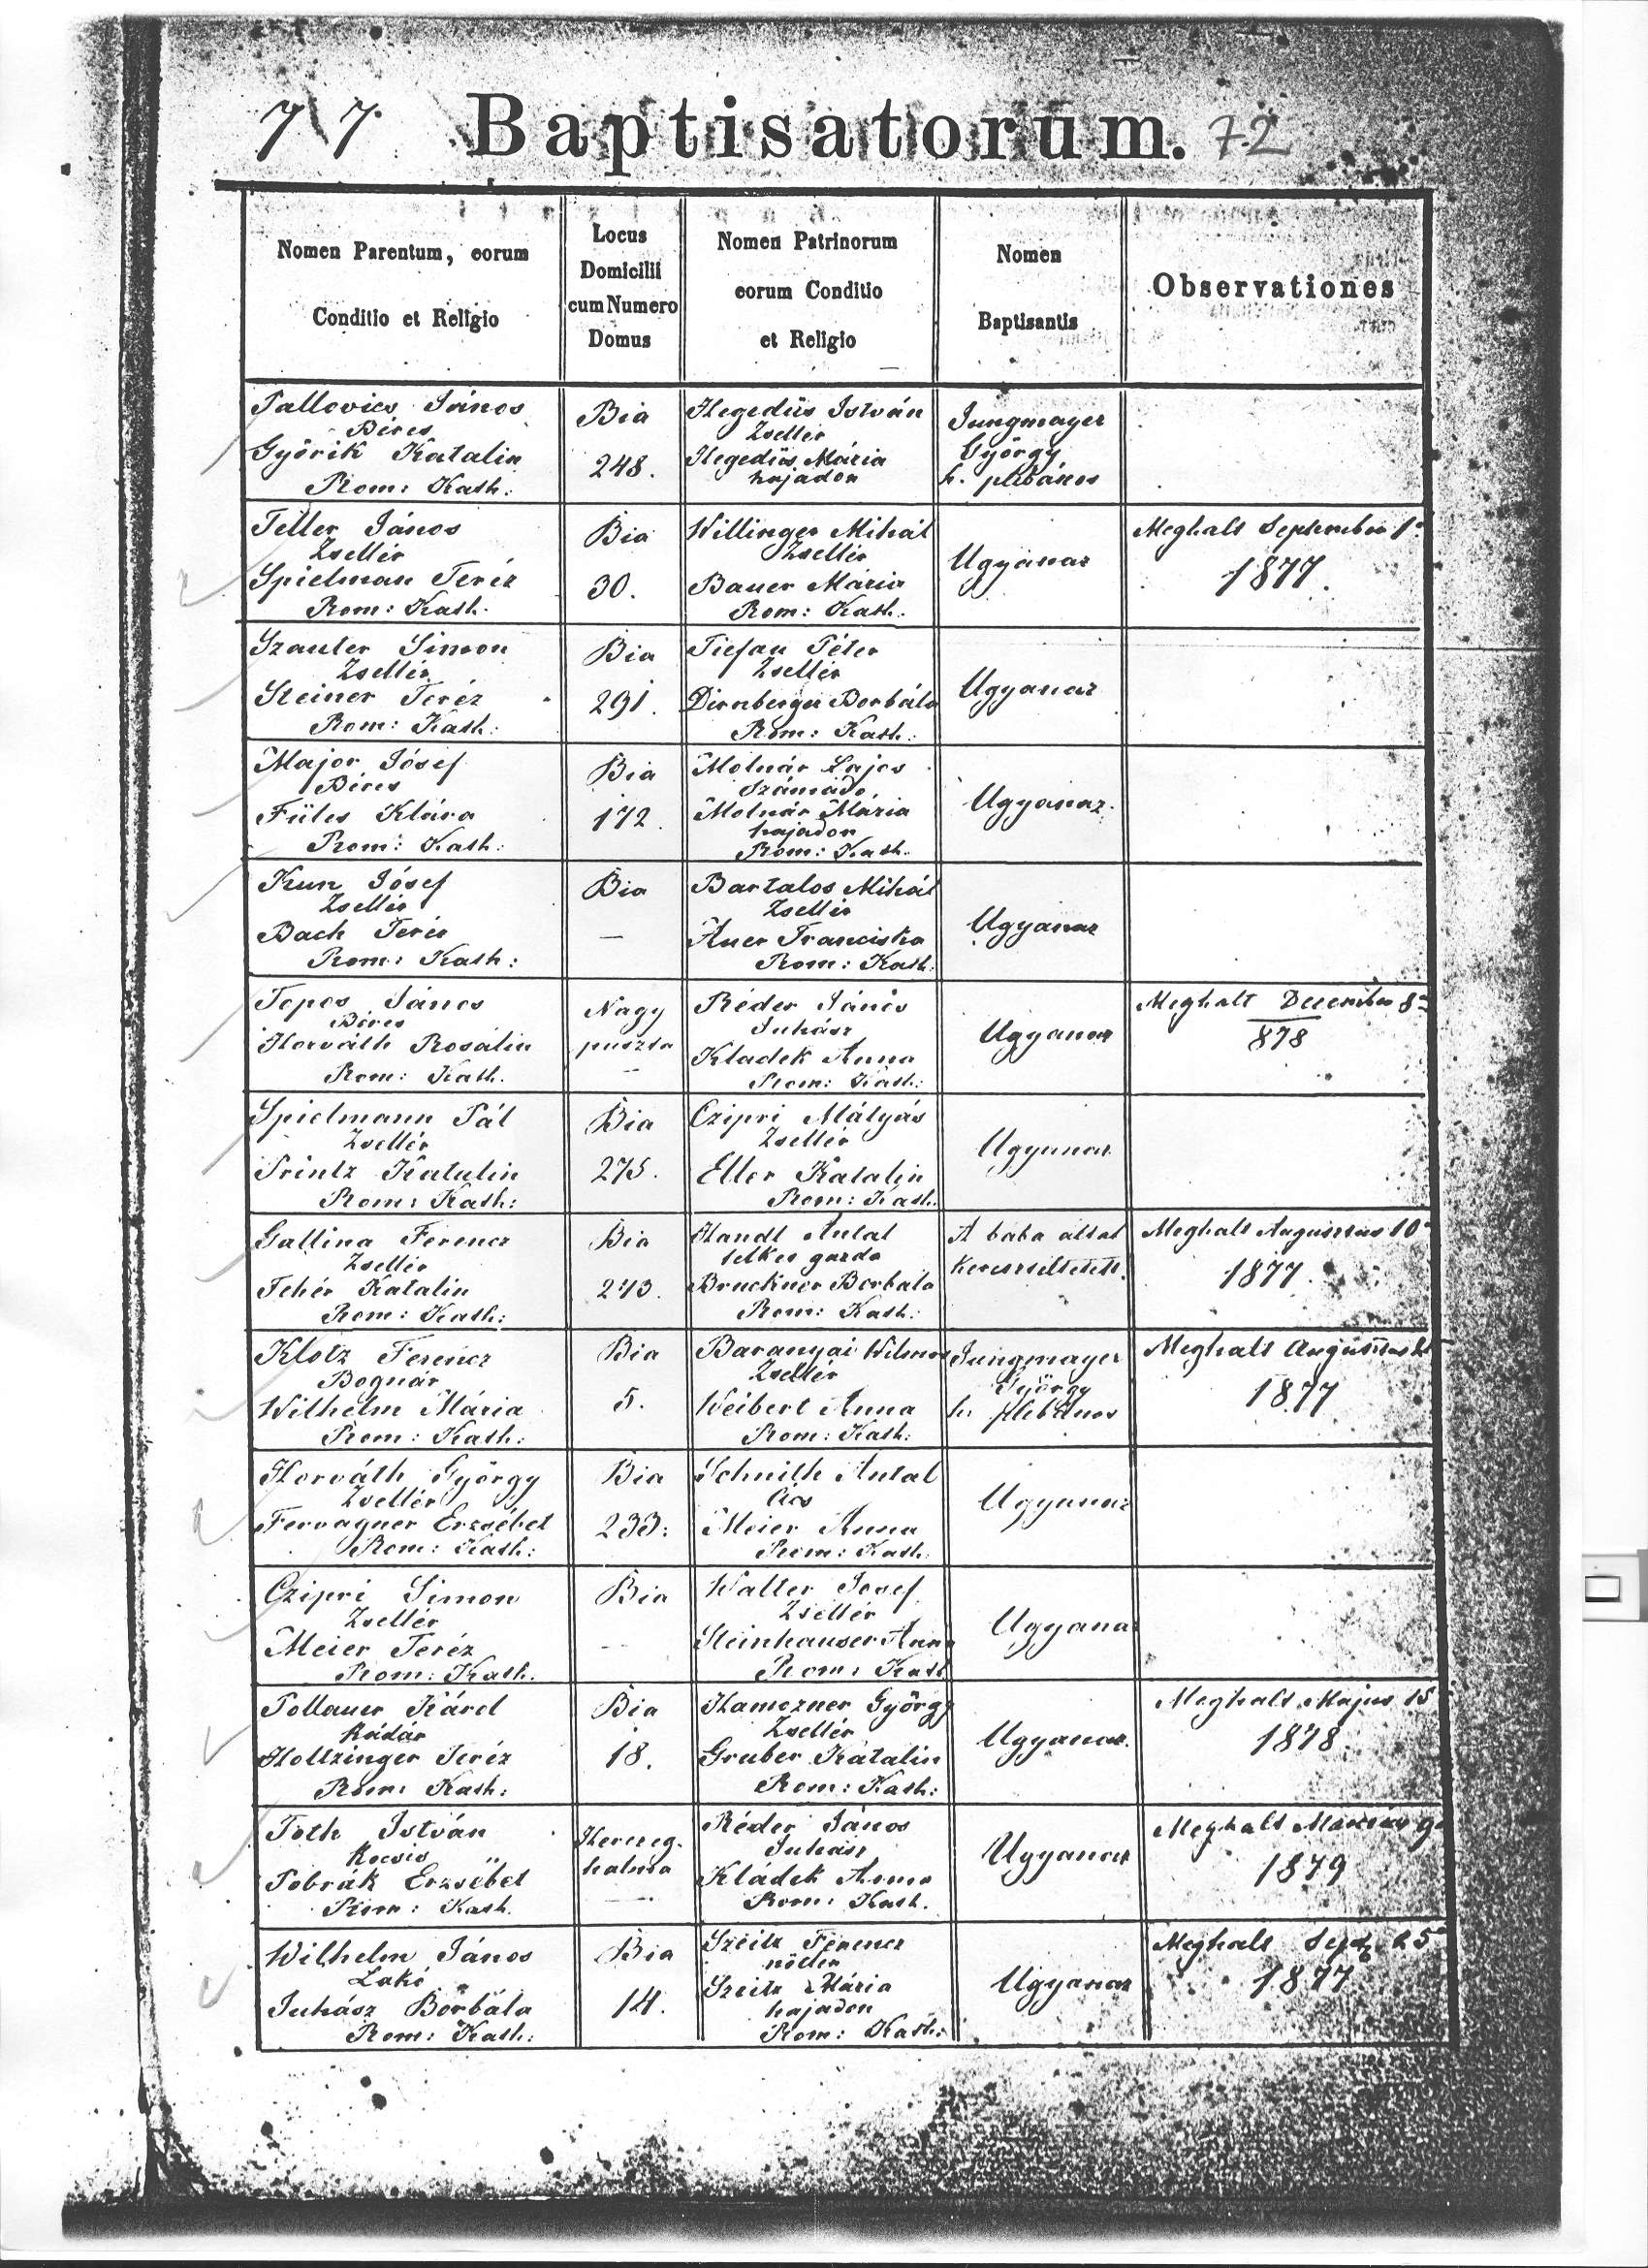 77. Baptisatorum. 72
Nomen Parentum, eorum
Conditio et Religio
Locus
Domicilii
cum Numero
Domus
Nomen Patrinorum
eorum Conditio
et Religio
Nomen
Baptisantis
Observationes
Pallovics János
Béres
Györik Katalin
Rom: Kath:
Bia
248.
Hegedüs István
Zsellér
Hegedüs Mária
hajadon
Jungmayer
György
h. plébános
Teller János
Zsellér
Spielman Teréz
Rom: Kath:
Bia
30.
Willinger Mihál
Zsellér
Bauer Mária
Rom: Kath:
Ugyanaz
Meghalt September 1
1877.
Szauter Simon
Zsellér
Steiner Teréz
Rom: Kath:
Bia
291.
Tiefau Péter
Zsellér
Dirnberger Borbála
Rom: Kath:
Ugyanaz
Major Jósef
Béres
Füles Klára
Rom: Kath:
Bia
172.
Molnár Lajos
Számádó
Molnár Mária
hajadon
Rom: Kath.
Ugyanaz.
Kun Jósef
Zsellér
Bach Teréz
Rom: Kath:
Bia
—
Bartalos Mihál
Zsellér
Auer Franciska
Rom: Kath.
Ugyanaz
Béres
Horváth Rosália
Rom: Kath.
Nagy
puszta
Réder János
Juhász
Kladek Anna
Rom: Kath:
Ugyanaz
Meghalt December 8
878
Spielmann Pál
Zsellér
Printz Katalin
Rom: Kath:
Bia
275.
Czipri Mátyás
Zsellér
Eller Katalin
Rom: Kath.
Ugyanaz
Gallina Ferencz
Zsellér
Fehér Katalin
Rom: Kath:
Bia
Handl Antal
telkes gazda
Bruckner Borbála
Rom: Kath:
A bába által
kereszteltetett.
Meghalt Augusztus 10
1877.
Klotz Ferencz
Bognár
Wilhelm Mária
Rom: Kath:
Bia
5.
Baranyai Wilmos
Zsellér
Weibert Anna
Rom: Kath:
Jungmayer
György
h. plébános
Meghalt Augusztus
1877
Horváth György
Zsellér
Fervagner Erzsébet
Rom: Kath:
Bia
233.
Schmith Antal
Ács
Meier Anna
Rom: Kath.
Ugyanaz
Czipri Simon
Zsellér
Meier Teréz
Rom: Kath.
Bia
Walter Josef
Zsellér
Steinhauser Anna
Rom: Kath
Ugyanaz
Pollauer Károl
Kádár
Holtzinger Teréz
Rom: Kath:
Bia
18.
Hamczner György
Zsellér
Gruber Katalin
Rom: Kath:
Ugyanaz.
Meghalt Május 15
1878.
Toth István
Kocsis
Pobrák Erzsébet
Rom: Kath.
Herczeg-
halma
Réder János
Juhász
Kládek Anna
Rom: Kath.
Ugyanaz
Meghalt Marczius 9
1879
Wilhelm János
Lakó
Juhász Borbála
Rom: Kath:
Bia
14.
Szeitz Ferencz
nőtlen
Szeitz Mária
hajadon
Rom: Kath:
Ugyanaz
Meghalt Sept. 25
1877